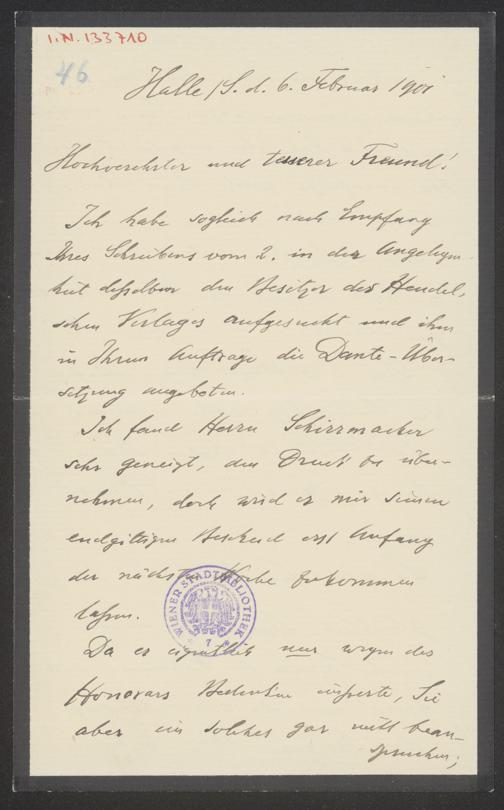 I.N. 133710
46
Halle /S. d. 6. Februar 1901
Hochverehrter und teuerer Freund!
Ich habe sogleich nach Empfang
Ihres Schreibens vom 2. in der Angelegen-
heit desselben den Besitzer des Hendel-
schen Verlages aufgesucht und ihm
in Ihrem Auftrage die Dante-Über-
setzung angeboten.
Ich fand Herrn Schirrmacher
sehr geneigt, den Druck zu über-
nehmen, doch wird er mir seinen
endgiltigen Bescheid erst Anfang
der nächsten Woche zukommen
lassen.
WIENER STADTBIBLIOTHEK
7
Da er eigentlich nur wegen des
Honorars Bedenken äusserte, Sie
aber ein solches gar nicht bean-
spruchen;